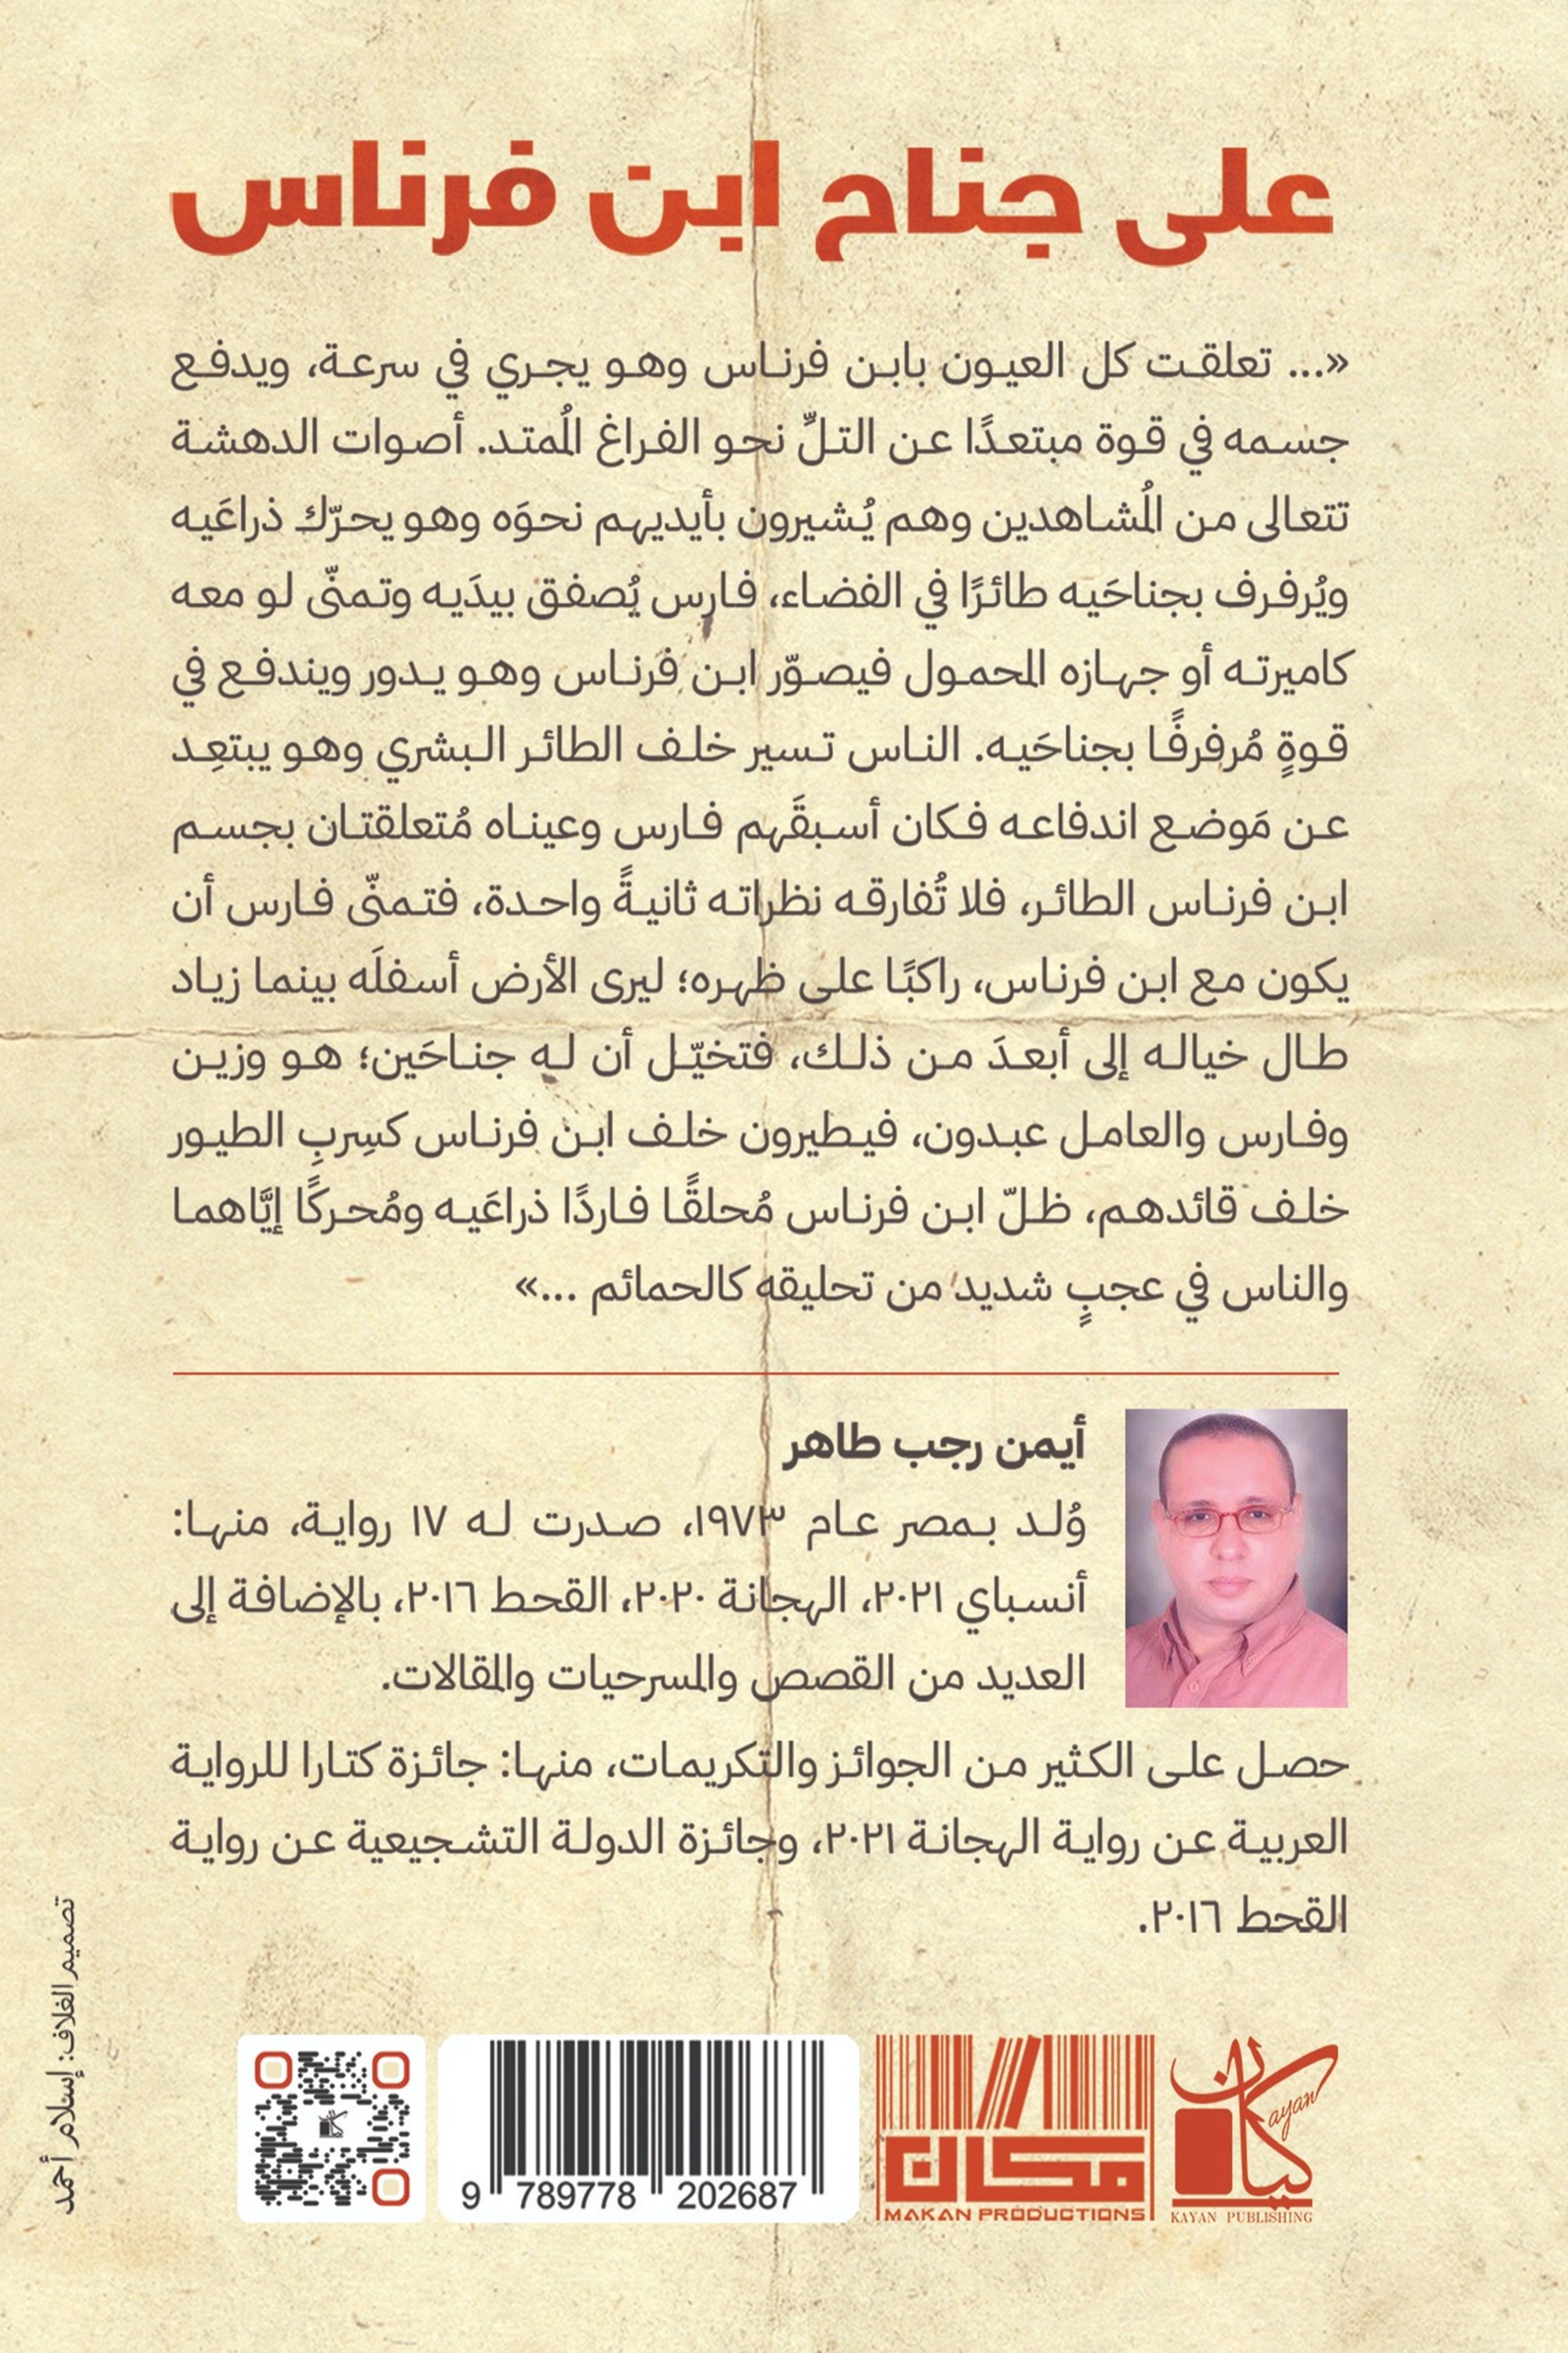 على جناح ابن فرناس
«... تعلقت كل العيون بابن فرناس وهو يجري في سرعة، ويدفع
جسمه في قوة مبتعدًا عن التلِّ نحو الفراغ المُمتد. أصوات الدهشة
تتعالى من المُشاهدين وهم يُشيرون بأيديهم نحوَه وهو يحرّك ذراعَيه
ويُرفرف بجناحَيه طائرًا في الفضاء، فارس يُصفق بيدَيه وتمنّى لو معه
كاميرته أو جهازه المحمول فيصوّر ابن فرناس وهو يدور ويندفع في
قوةٍ مُرفرفًا بجناحَيه. الناس تسير خلف الطائر البشري وهو يبتعِد
عن مَوضع اندفاعه فكان أسبقَهم فارس وعيناه مُتعلقتان بجسم
ابن فرناس الطائر، فلا تُفارقه نظراته ثانيةً واحدة، فتمنّى فارس أن
يكون مع ابن فرناس، راكبًا على ظهره؛ ليرى الأرض أسفلَه بينما زياد
طال خياله إلى أبعدَ من ذلك، فتخيّل أن له جناحَين؛ هو وزين
وفارس والعامل عبدون، فيطيرون خلف ابن فرناس كسِربِ الطيور
خلف قائدهم، ظلّ ابن فرناس مُحلقًا فاردًا ذراعَيه ومُحركًا إيَّاهما
والناس في عجبٍ شديد من تحليقه كالحمائم ...»
أيمن رجب طاهر
وُلد بمصر عام ١٩٧٣، صدرت له ١٧ رواية، منها:
أنسباي ٢٠٢١، الهجانة ٢٠٢٠، القحط ٢٠١٦، بالإضافة إلى
العديد من القصص والمسرحيات والمقالات.
حصل على الكثير من الجوائز والتكريمات، منها: جائزة كتارا للرواية
العربية عن رواية الهجانة ٢٠٢١، وجائزة الدولة التشجيعية عن رواية
القحط ٢٠١٦.
تصميم الغلاف: إسلام أحمد
كيان
Kayan
KAYAN PUBLISHING
مكان
MAKAN PRODUCTIONS
9 789778 202687